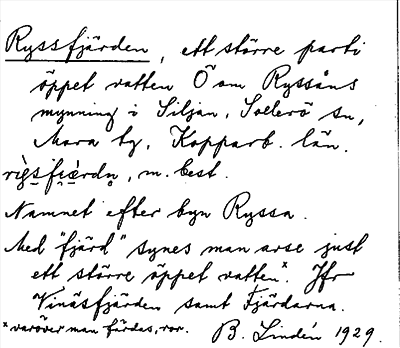 Ryssfjärden, ett större parti
öppet vatten Ö om Ryssåns
mynning i Siljan, Sollerö sn,
Mora tg, Kopparb. län.
m. best.
Namnet efter byn Ryssa.
Med "fjärd" synes man avse just
ett större öppet vatten.ˣ Jfr
Vinäsfjärden samt Fjärdarna.
ˣ varöver man färdas, ror. B. Lindén 1929.